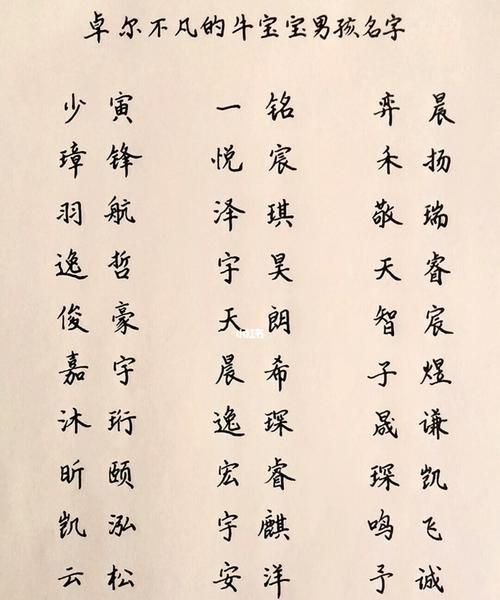 卓尔不凡的牛宝宝男孩名字
少寅 一铭 弈晨
璋锋 悦宸 禾扬
羽航 泽琪 敬瑞
逸哲 宇昊 天睿
俊豪 天朗 智宸
小红书
嘉宇 晨希 子煜
沐珩 逸琛 晟谦
昕颐 宏睿 琛凯
凯泓 宇麒 鸣飞
云松 安洋 予诚